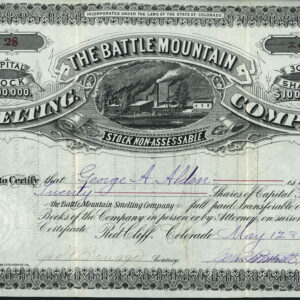 INCORPORATED UNDER THE LAWS OF THE STATE OF COLORADO.
28
THE BATTLE MOUNTAIN
CAPITAL
STOCK
$100,000.
SMELTING COMPANY
STOCK NON-ASSESSABLE
to Certify that George A. Alden is
Twenty Shares of Capital
the Battle Mountain Smelting Company full paid, transferable
Books of the Company in person or by Attorney, on
Certificate. Red Cliff, Colorado May 123
Secretary